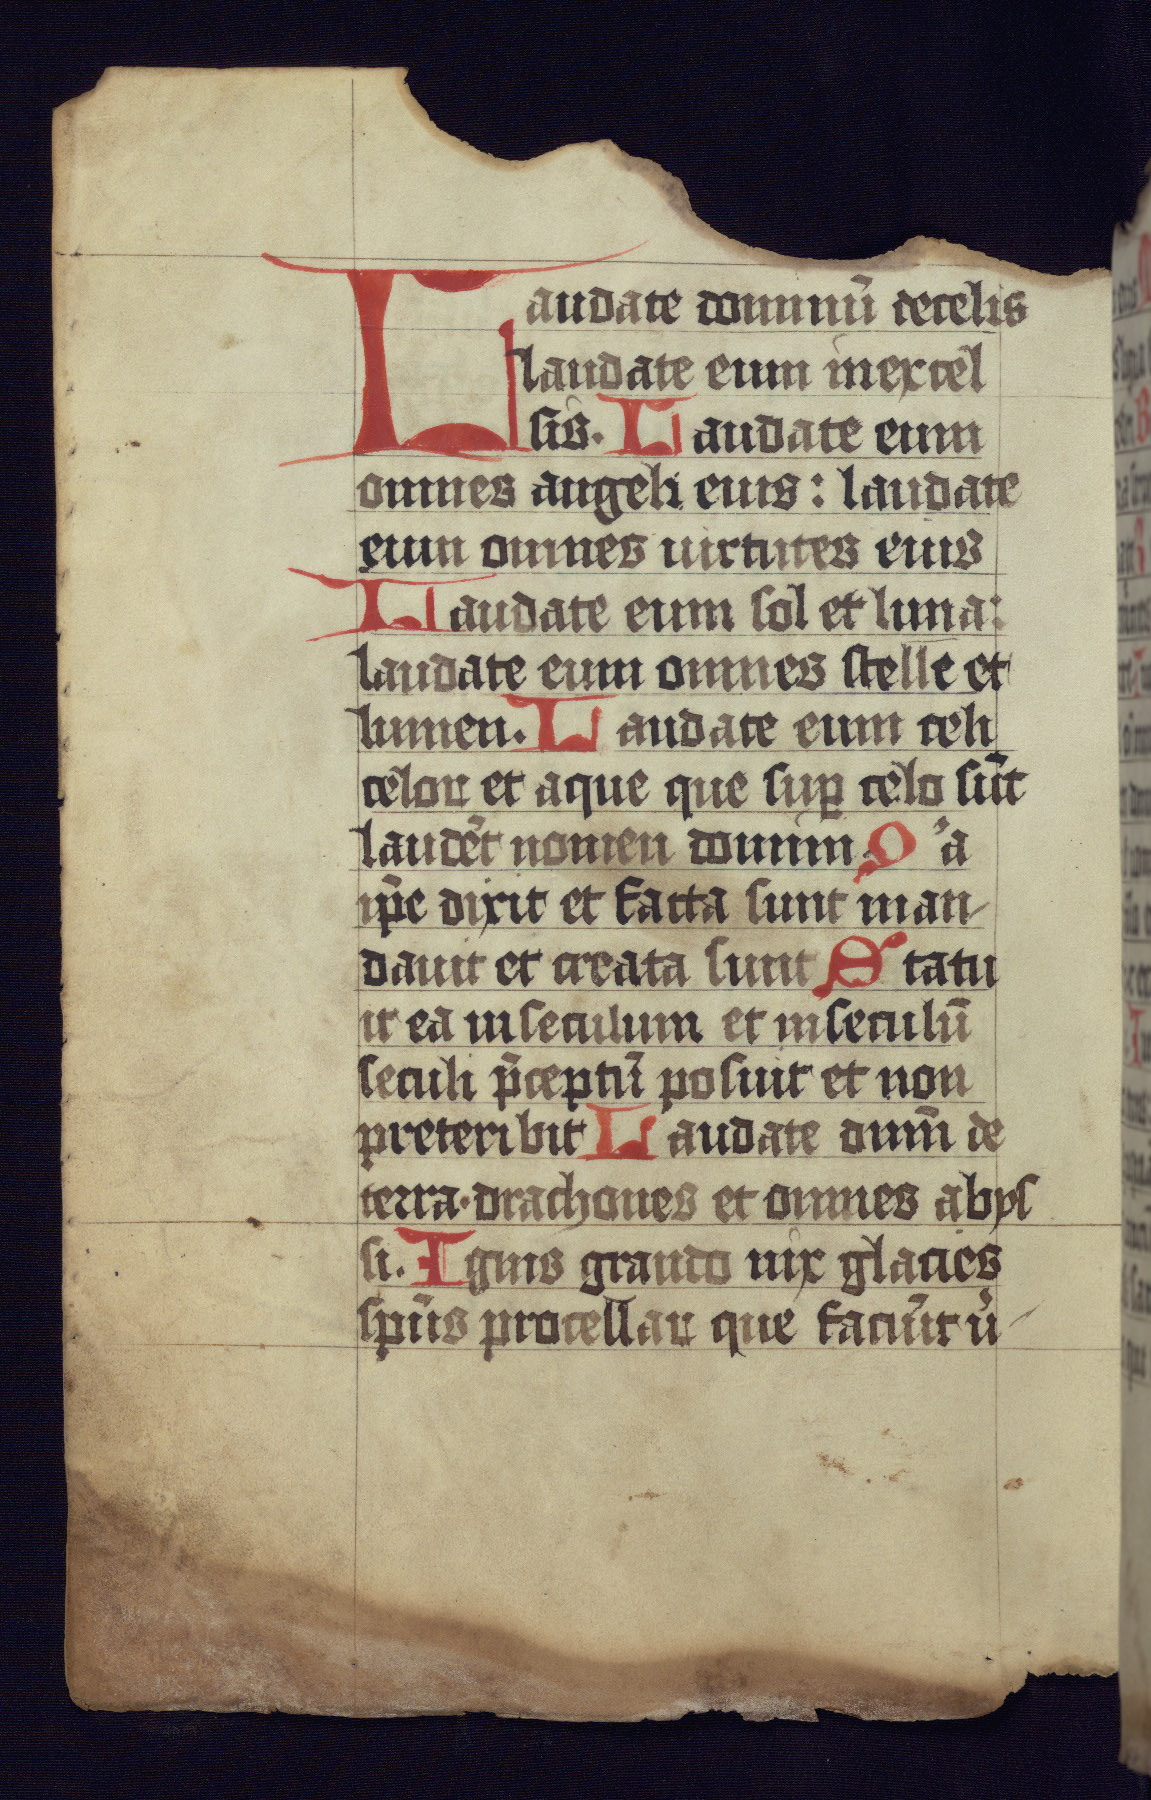 Laudate dominū decelis
laudate eum inexcel
sis. Laudate eum
omnes angeli eius : laudate
eum omnes uirtutes eius
Laudate eum sol et luna:
laudate eum omnes stelle et
lumen. Laudate eum celi
celoꝝ et aque que suꝑ celo sūt
laudēt nomen domini. Q'a
ip̄e dixit et facta sunt man-
dauit et creata sunt Statu
it ea inseculum et inseculū
seculi p̄ceptū posuit et non
preteribit Laudate dnm̄ de
terra. drachones et omnes abys
si. Ignis grando nix glacies
spūs procellaꝝ que faciūt ū-